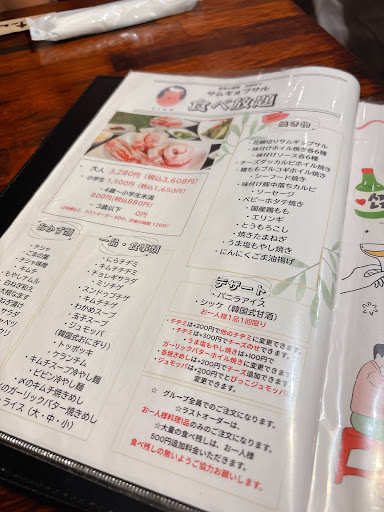 サムギョプサル
食べ放題
大人 3,280円(税込3,608円)
小学生 1,500円(税込1,650円)
4歳〜小学生未満
800円(税込880円)
3歳以下 0円
焼き物
・花柄切りサムギョプサル
・味付けホイル焼き各6種
・味付けソース各6種
・チーズダッカルビホイル焼き
・鶏ももプルコギホイル焼き
・シーフード焼き
・味付け豚中落ちカルビ
・ソーセージ
・ベビーホタテ焼き
・国産鶏もも
・エリンギ
・とうもろこし
・焼きたまねぎ
・うま塩もやし焼き
・にんにくごま油揚げ
おかず選
・チシャ
・ごまの葉
・チシャ味噌
・キムチ
・もやしナムル
一品・食事類
・にらチヂミ
・キムチチヂミ
・チョレギサラダ
・ミニチゲ
・スンドゥブチゲ
・キムチスープ
・わかめスープ
・玉子スープ
・ジュモッパ
(韓国式おにぎり)
・トッポッキ
・ケランチム
・キムチスープ冷やし麺
・ビビン冷やし麺
・〆のキムチ焼きめし
・〆のガーリックバター焼きめし
・ライス(大・中・小)
デザート
・バニラアイス
・シッケ(韓国式甘酒)
お一人様1品1回限り
・チヂミは+200円で他のチヂミに変更できます。
・チヂミは+300円でチーズのせできます。
・うま塩もやし焼きは+100円で
ガーリックバターホイル焼きに変更できます。
・各焼きめしは+200円でチーズ追加できます。
・ジュモッパは+200円でとびっこジュモッパに
変更できます。
☆ グループ全員でのご注文になります。
☆ラストオーダーは、
お一人様料理1品のみのご注文になります。
☆大量の食べ残しは、お一人様
500円追加料金いただきます。
食べ残しの無いようご協力お願いします。